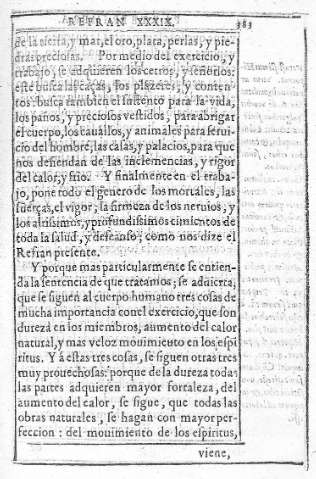 REFRAN XXXIX. 383
de la tierra, y mar, el oro, plata, perlas, y pie-
dras preciosas. Por medio del exercicio, y
trabajo, se adquieren los cetros, y señorios:
este busca las caças, los plazeres, y conten-
tos: busca tambien el sustento para la vida,
los paños, y preciosos vestidos, para abrigar
el cuerpo, los cauallos, y animales para serui-
cio del hombre, las casas, y palacios, para que
nos defiendan de las inclemencias, y rigor
del calor, y frio. Y finalmente en el traba-
jo, pone todo el genero de los mortales, las
fuerças, el vigor, la firmeza de los neruios, y
los altissimos, y profundissimos cimientos de
toda la salud, y descanso; como nos dize el
Refran presente.
Y porque mas particularmente se entien-
da la sentencia de que tratamos; se aduierta,
que se siguen al cuerpo humano tres cosas de
mucha importancia con el exercicio, que son
dureza en los miembros, aumento del calor
natural, y mas veloz mouimiento en los espi
ritus. Y á estas tres cosas, se siguen otras tres
muy prouechosas: porque de la dureza todas
las partes adquieren mayor fortaleza, del
aumento del calor, se sigue, que todas las
obras naturales, se hagan con mayor per-
feccion: del mouimiento de los espiritus,
viene,